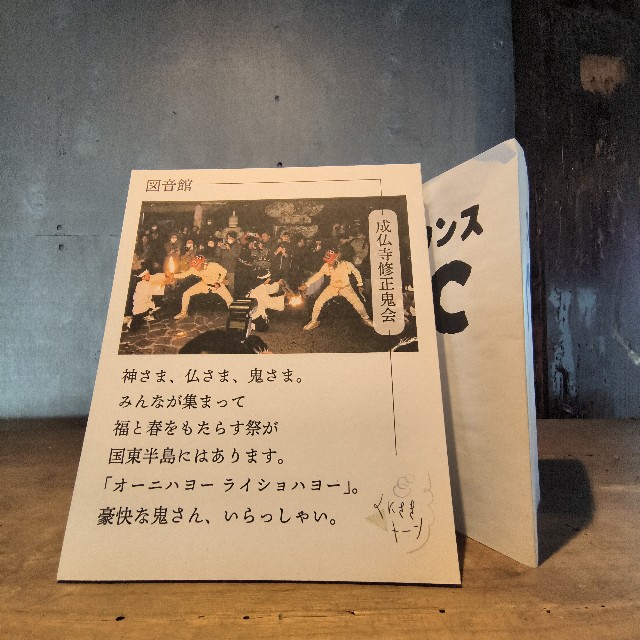 図音館
成仏寺修正鬼会
神さま、仏さま、鬼さま。
みんなが集まって
福と春をもたらす祭が
国東半島にはあります。
「オーニハヨー ライショハヨー」。
豪快な鬼さん、いらっしゃい。
くにさき
トーン
ンス
C